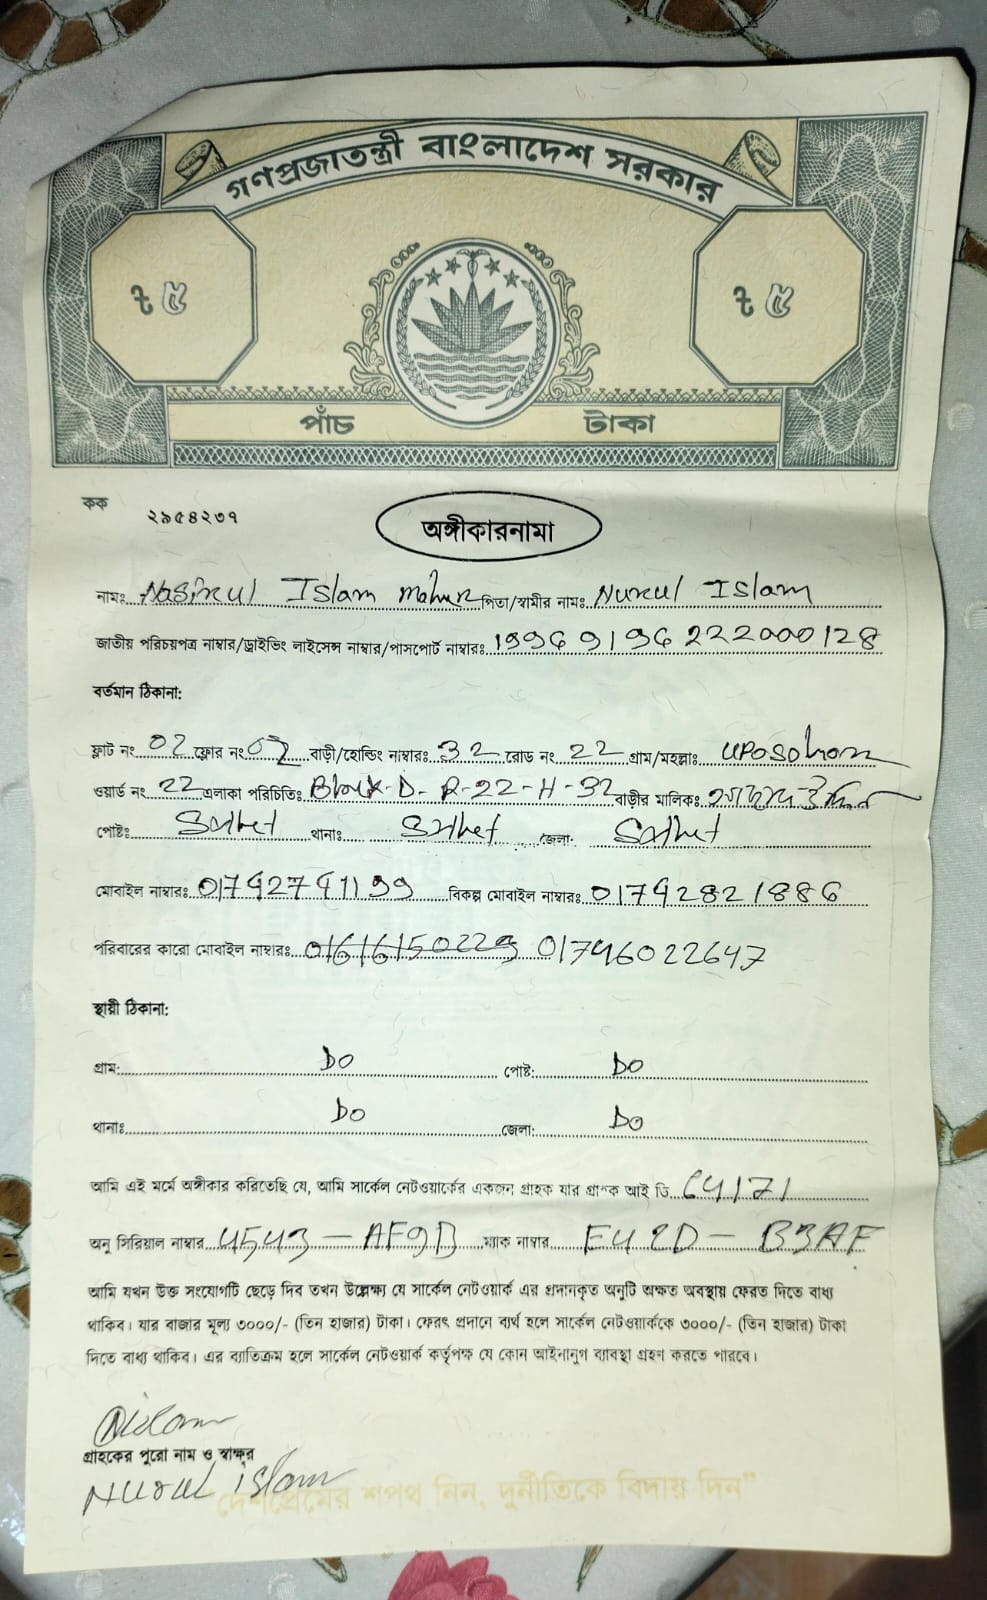 গণপ্রজাতন্ত্রী বাংলাদেশ সরকার
৳ ৫ ৳ ৫
পাঁচ টাকা
কক ২৯৫৪২৩৭
অঙ্গীকারনামা
নামঃ Nasirul Islam পিতা/স্বামীর নামঃ Nurul Islam
জাতীয় পরিচয়পত্র নাম্বার/ড্রাইভিং লাইসেন্স নাম্বার/পাসপোর্ট নাম্বারঃ 19969196222000128
বর্তমান ঠিকানা:
ফ্লাট নং 02 ফ্লোর নং 02 বাড়ী/হোল্ডিং নাম্বারঃ 32 রোড নং 22 গ্রাম/মহল্লাঃ
ওয়ার্ড নং 22 এলাকা পরিচিতিঃ Block-D-R-22-H-32 বাড়ীর মালিকঃ
পোষ্টঃ Sylhet থানাঃ Sylhet জেলা: Sylhet
মোবাইল নাম্বারঃ বিকল্প মোবাইল নাম্বারঃ 01792821886
পরিবারের কারো মোবাইল নাম্বারঃ 01796022647
স্থায়ী ঠিকানা:
গ্রাম: DO পোষ্ট: DO
থানাঃ DO জেলা: DO
আমি এই মর্মে অঙ্গীকার করিতেছি যে, আমি সার্কেল নেটওয়ার্কের একজন গ্রাহক যার গ্রাহক আই ডি 64171
অনু সিরিয়াল নাম্বার 4543-AF9D ম্যাক নাম্বার E42D-B3AF
আমি যখন উক্ত সংযোগটি ছেড়ে দিব তখন উল্লেখ্য যে সার্কেল নেটওয়ার্ক এর প্রদানকৃত অনুটি অক্ষত অবস্থায় ফেরত দিতে বাধ্য
থাকিব। যার বাজার মূল্য ৩০০০/- (তিন হাজার) টাকা। ফেরৎ প্রদানে ব্যর্থ হলে সার্কেল নেটওয়ার্ককে ৩০০০/- (তিন হাজার) টাকা
দিতে বাধ্য থাকিব। এর ব্যতিক্রম হলে সার্কেল নেটওয়ার্ক কর্তৃপক্ষ যে কোন আইনানুগ ব্যবস্থা গ্রহণ করতে পারবে।
গ্রাহকের পুরো নাম ও স্বাক্ষর
Nurul islam
দেশপ্রেমের শপথ নিন, দুর্নীতিকে বিদায় দিন"